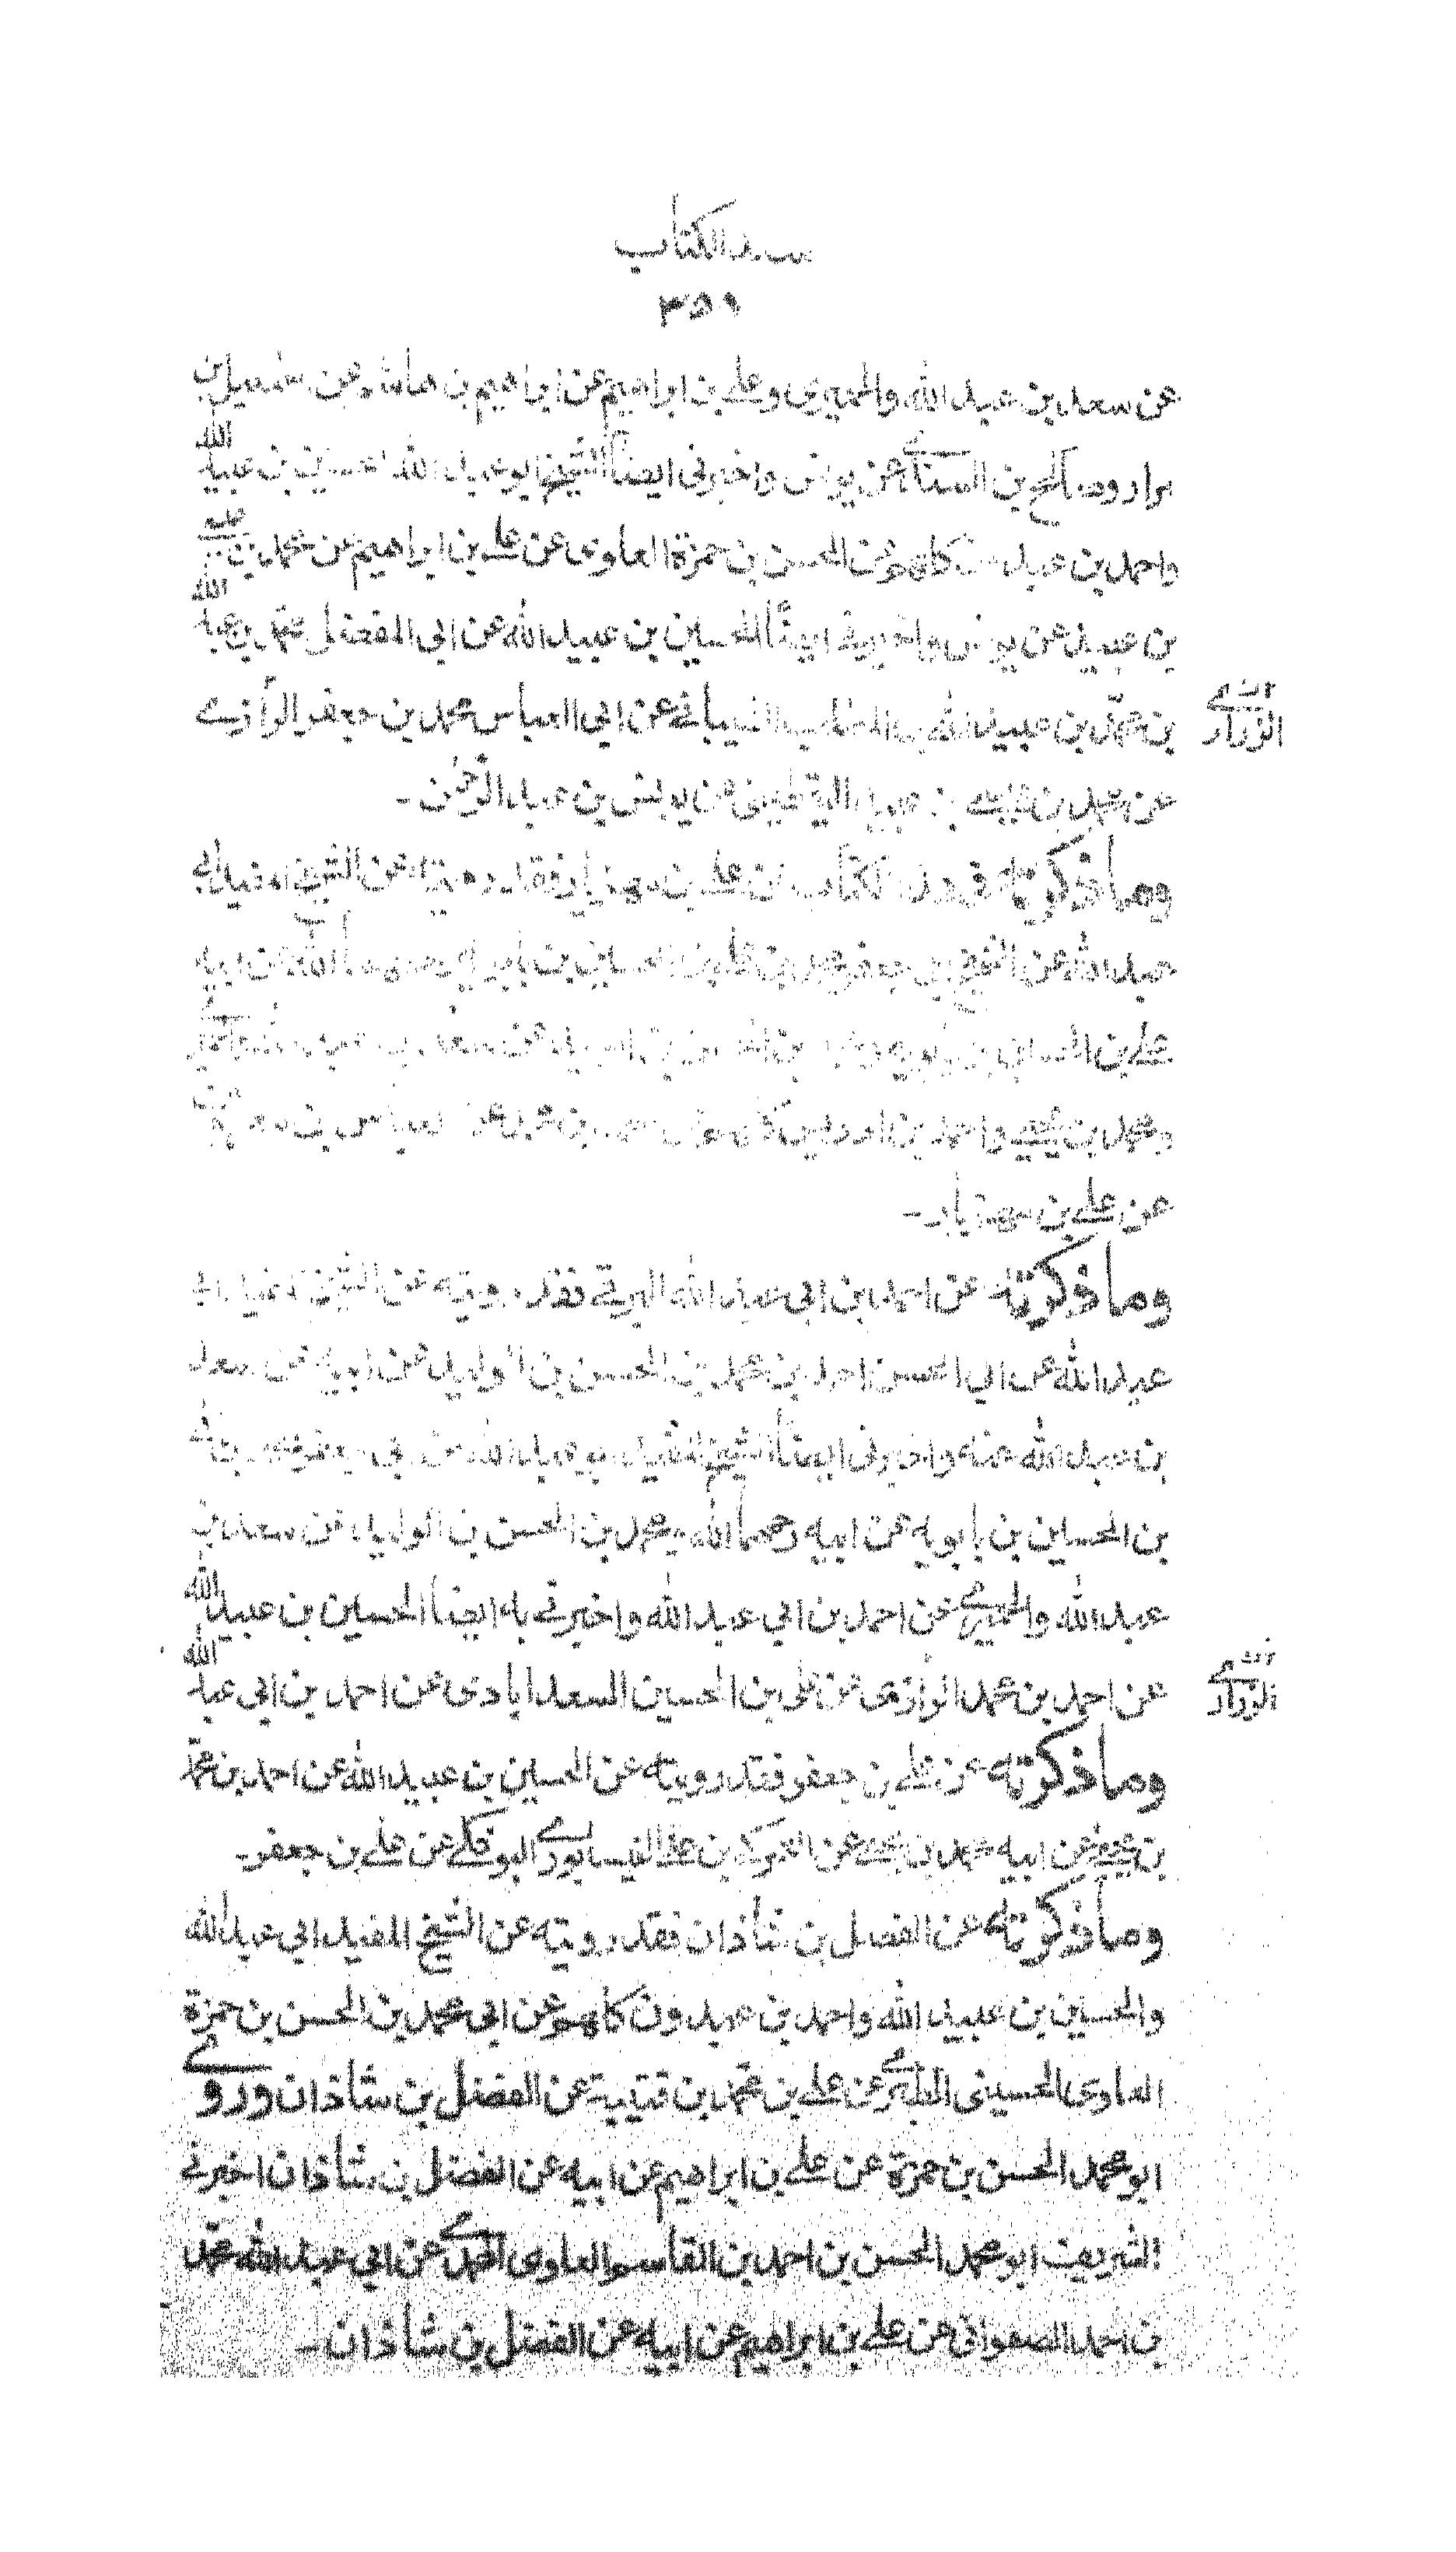 سند الكتاب
٣٥٩
عن سعد بن عبد الله والحميرى وعلى بن ابراهيم عن ابراهيم بن هاشم عن اسمعيل بن
مرار وصالح بن السندى عن يونس واخبرنى ايضاً الشيخ ابو عبد الله الحسين بن عبيد الله
واحمد بن عبدون كلهم عن الحسن بن حمزة العلوى عن على بن ابراهيم عن محمد بن عيسى
بن عبيد عن يونس واخبرنى ايضاً الحسين بن عبيد الله عن ابى المفضل محمد بن عبد الله
بن محمد بن عبيد الله بن المطلب الشيبانى عن ابى العباس محمد بن جعفر الرازى
الزرارى
عن محمد بن عيسى بن عبيد اليقطينى عن يونس بن عبد الرحمن -
وما ذكرته فى هذا الكتاب عن على بن مهزيار فقد رويته عن الشيخ المفيد ابى
عبد الله عن الشيخ ابى جعفر محمد بن على بن الحسين بن بابويه عن ابيه
على بن الحسين بن بابويه
ومحمد بن يحيى واحمد بن ادريس كلهم عن احمد بن محمد عن العباس بن معروف
عن على بن مهزيار -
وما ذكرته عن احمد بن ابى عبد الله البرقى فقد رويته عن الشيخ المفيد ابى
عبد الله عن ابى الحسن احمد بن محمد بن الحسن بن الوليد عن ابيه عن سعد
بن عبد الله عنه واخبرنى ايضاً الشيخ المفيد ابو عبد الله عن ابى جعفر محمد بن على
بن الحسين بن بابويه عن ابيه رحمهما الله ومحمد بن الحسن بن الوليد عن سعد بن
عبد الله والحميرى عن احمد بن ابى عبد الله واخبرنى به ايضاً الحسين بن عبيد الله
عن احمد بن محمد الرازى عن على بن الحسين السعدابادى عن احمد بن ابى عبد الله
الزرارى
وما ذكرته عن على بن جعفر فقد رويته عن الحسين بن عبيد الله عن احمد بن محمد
بن يحيى عن ابيه محمد بن يحيى عن العمركى بن على النيسابورى البوفكى عن على بن جعفر -
وما ذكرته عن الفضل بن شاذان فقد رويته عن الشيخ المفيد ابى عبد الله
والحسين بن عبيد الله واحمد بن عبدون كلهم عن ابى محمد بن الحسن بن حمزة
العلوى الحسينى الطبرى عن على بن محمد بن قتيبة عن الفضل بن شاذان وروى
ابو محمد الحسن بن حمزة عن على بن ابراهيم عن ابيه عن الفضل بن شاذان اخبرنى
الشريف ابو محمد الحسن بن احمد بن القاسم العلوى المحمدى عن ابى عبد الله محمد
بن احمد الصفوانى عن على بن ابراهيم عن ابيه عن الفضل بن شاذان -